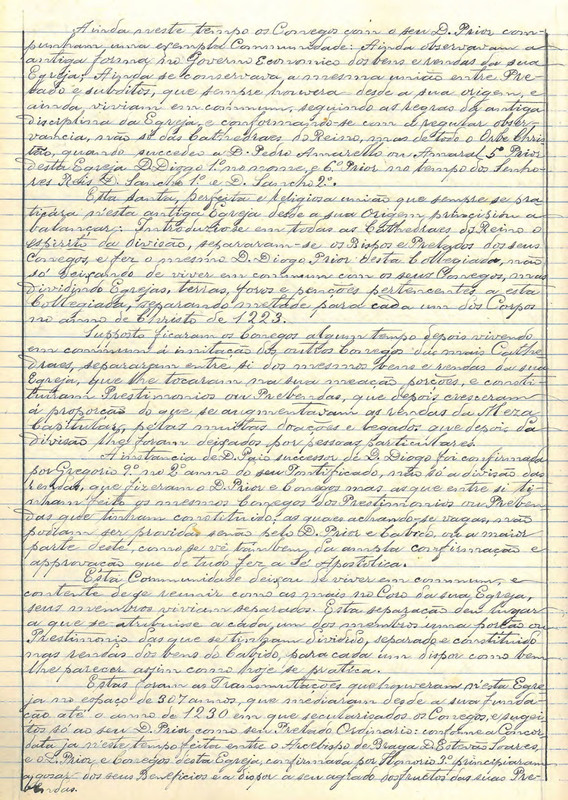 Ainda neste tempo os Conegos com o seu D. Prior com-
punham uma exempla Communidade: Ainda observavam a
antiga forma no Governo Economico dos bens e rendas da sua
Egreja! Ainda se conservava a mesma união entre Pre-
lado e subditos, que sempre houvera desde a sua origem, e
ainda viviam em commum, seguindo as regras da antiga
disciplina da Egreja, e conformando-se com a regular obser-
vancia, não só das Cathedraes do Reino, mas de todo o Orbe Chris-
tão, quando succedeo a D. Pedro Amarello ou Amaral 5º Prior
desta Egreja D. Diogo 1º no nome, e 6º Prior no tempo dos senho-
res Reis D. Sancho 1º e D. Sancho 2º.
Esta santa, perfeita e religiosa união que sempre se pra-
ticára n'esta antiga Egreja desde a sua origem principiou a
balançar: Introduzio-se em todas as Cathedraes do Reino o
espirito da divisão, separaram-se os Bispos e Prelados dos seus
Conegos, e fez o mesmo D. Diogo, Prior desta Collegiada, não
só deixando de viver em commum com os seus Conegos, mas
dividindo Egrejas, terras, foros e penções pertencentes a esta
Collegiada, separando metade para cada um dos Corpos
no anno de Christo de 1223.
Supposto ficaram os Conegos algum tempo depois vivendo
em commum á imitação dos outros Conegos das mais Cathe-
draes, separaram entre si dos mesmos bens e rendas da sua
Egreja, que lhe tocaram na sua meação porções, e consti-
tuiram Prestimonios ou Prebendas, que depois cresceram
á proporção do que se augmentavam as rendas da Meza
Capitular, pelas muitas doações e legados que depois da
divisão lhe foram deixados por pessoas particulares.
A instancia de D. Paio successor de D. Diogo foi confirmada
por Gregorio 9º no 2º anno do seu Pontificado, não só a divisão das
rendas, que fizeram o D. Prior e Conegos mas as que entre si ti-
nham feito os mesmos Conegos dos Prestimonios ou Preben-
das que tinham constituido: as quaes achando-se vagas, não
podiam ser providas senão pelo D. Prior e Cabido, ou a maior
parte deste, como se vê tambem da ampla confirmação e
approvação que de tudo fez a Sé Apostolica.
Esta Communidade deixou de viver em commum, e
contente de se reunir como as mais no Coro da sua Egreja,
seus membros viviam separados. Esta separação deu lugar
a que se attribuisse a cada um dos membros uma porção ou
Prestimonio das que se tinham dividido, separado e constituido
nas rendas dos bens do Cabido, para cada um dispor como bem
lhe parecer assim como hoje se pratica.
Estas foram as Transmutações que houveram n'esta Egre-
ja no espaço de 307 annos, que mediaram desde a sua funda-
ção até o anno de 1230 em que secularisados os Conegos, e sugei-
tos só ao seu D. Prior como seu Prelado Ordinario: conforme a Concor-
data já n'este tempo feita entre o Arcebispo de Braga D. Estevão Soares,
e o D. Prior, e Conegos desta Egreja, confirmada por Honorio 3º principiaram
a gosar dos seus Beneficios e a dispor a seu agrado dos fructos das suas Pre-
bendas.